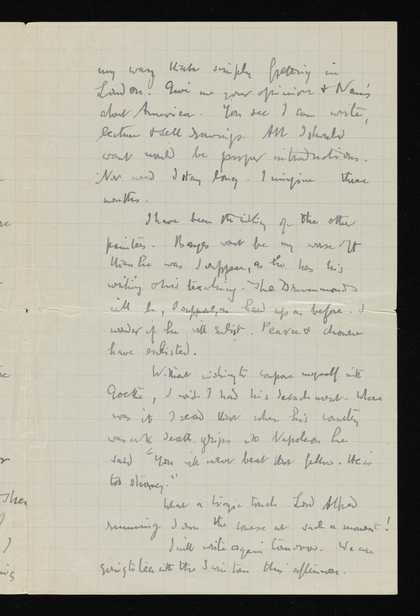 my way than simply fretting in
London. Give me your opinion & Nan's
about America. You see I can write,
lecture & sell drawings. All I should
want would be proper introductions.
Nor need I stay long. I imagine three
months.
I have been thinking of the other
painters. Bayes wont be any worse off
than he was I suppose, as he has his
writing & his teaching. The Drummonds
will be, I suppose, hard up as before. I
wonder if he will enlist. Pearce &
have enlisted.
Without wishing to compare myself with
Goethe, I wish I had his detachment. Where
was it I read that when his country
was in death grips with Napoleon he
said "You will never beat that fellow. He is
too strong."
What a tragic touch Lord Alfred
running I am the case at such a moment!
I will write again tomorrow. We are
going to tea with the this afternoon.